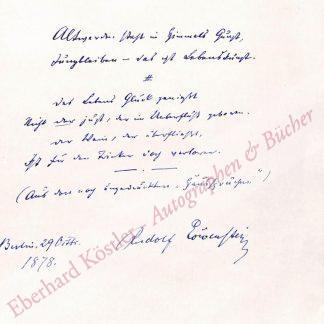 Altwerden steht in Himmels Gunst,
Jungbleiben – das ist Lebenskunst.
#
Des Lebens Glück genießt
Nicht der just, der in Ueberfluß geboren.
Der Wein, der überfließt,
Ist für den Trinker doch verloren.
(Aus den noch ungedruckten „Haussprüchen")
Berlin, 29 Octb. Rudolf Löwenstein
1878.
Eberhard Köstler Autographen & Bücher